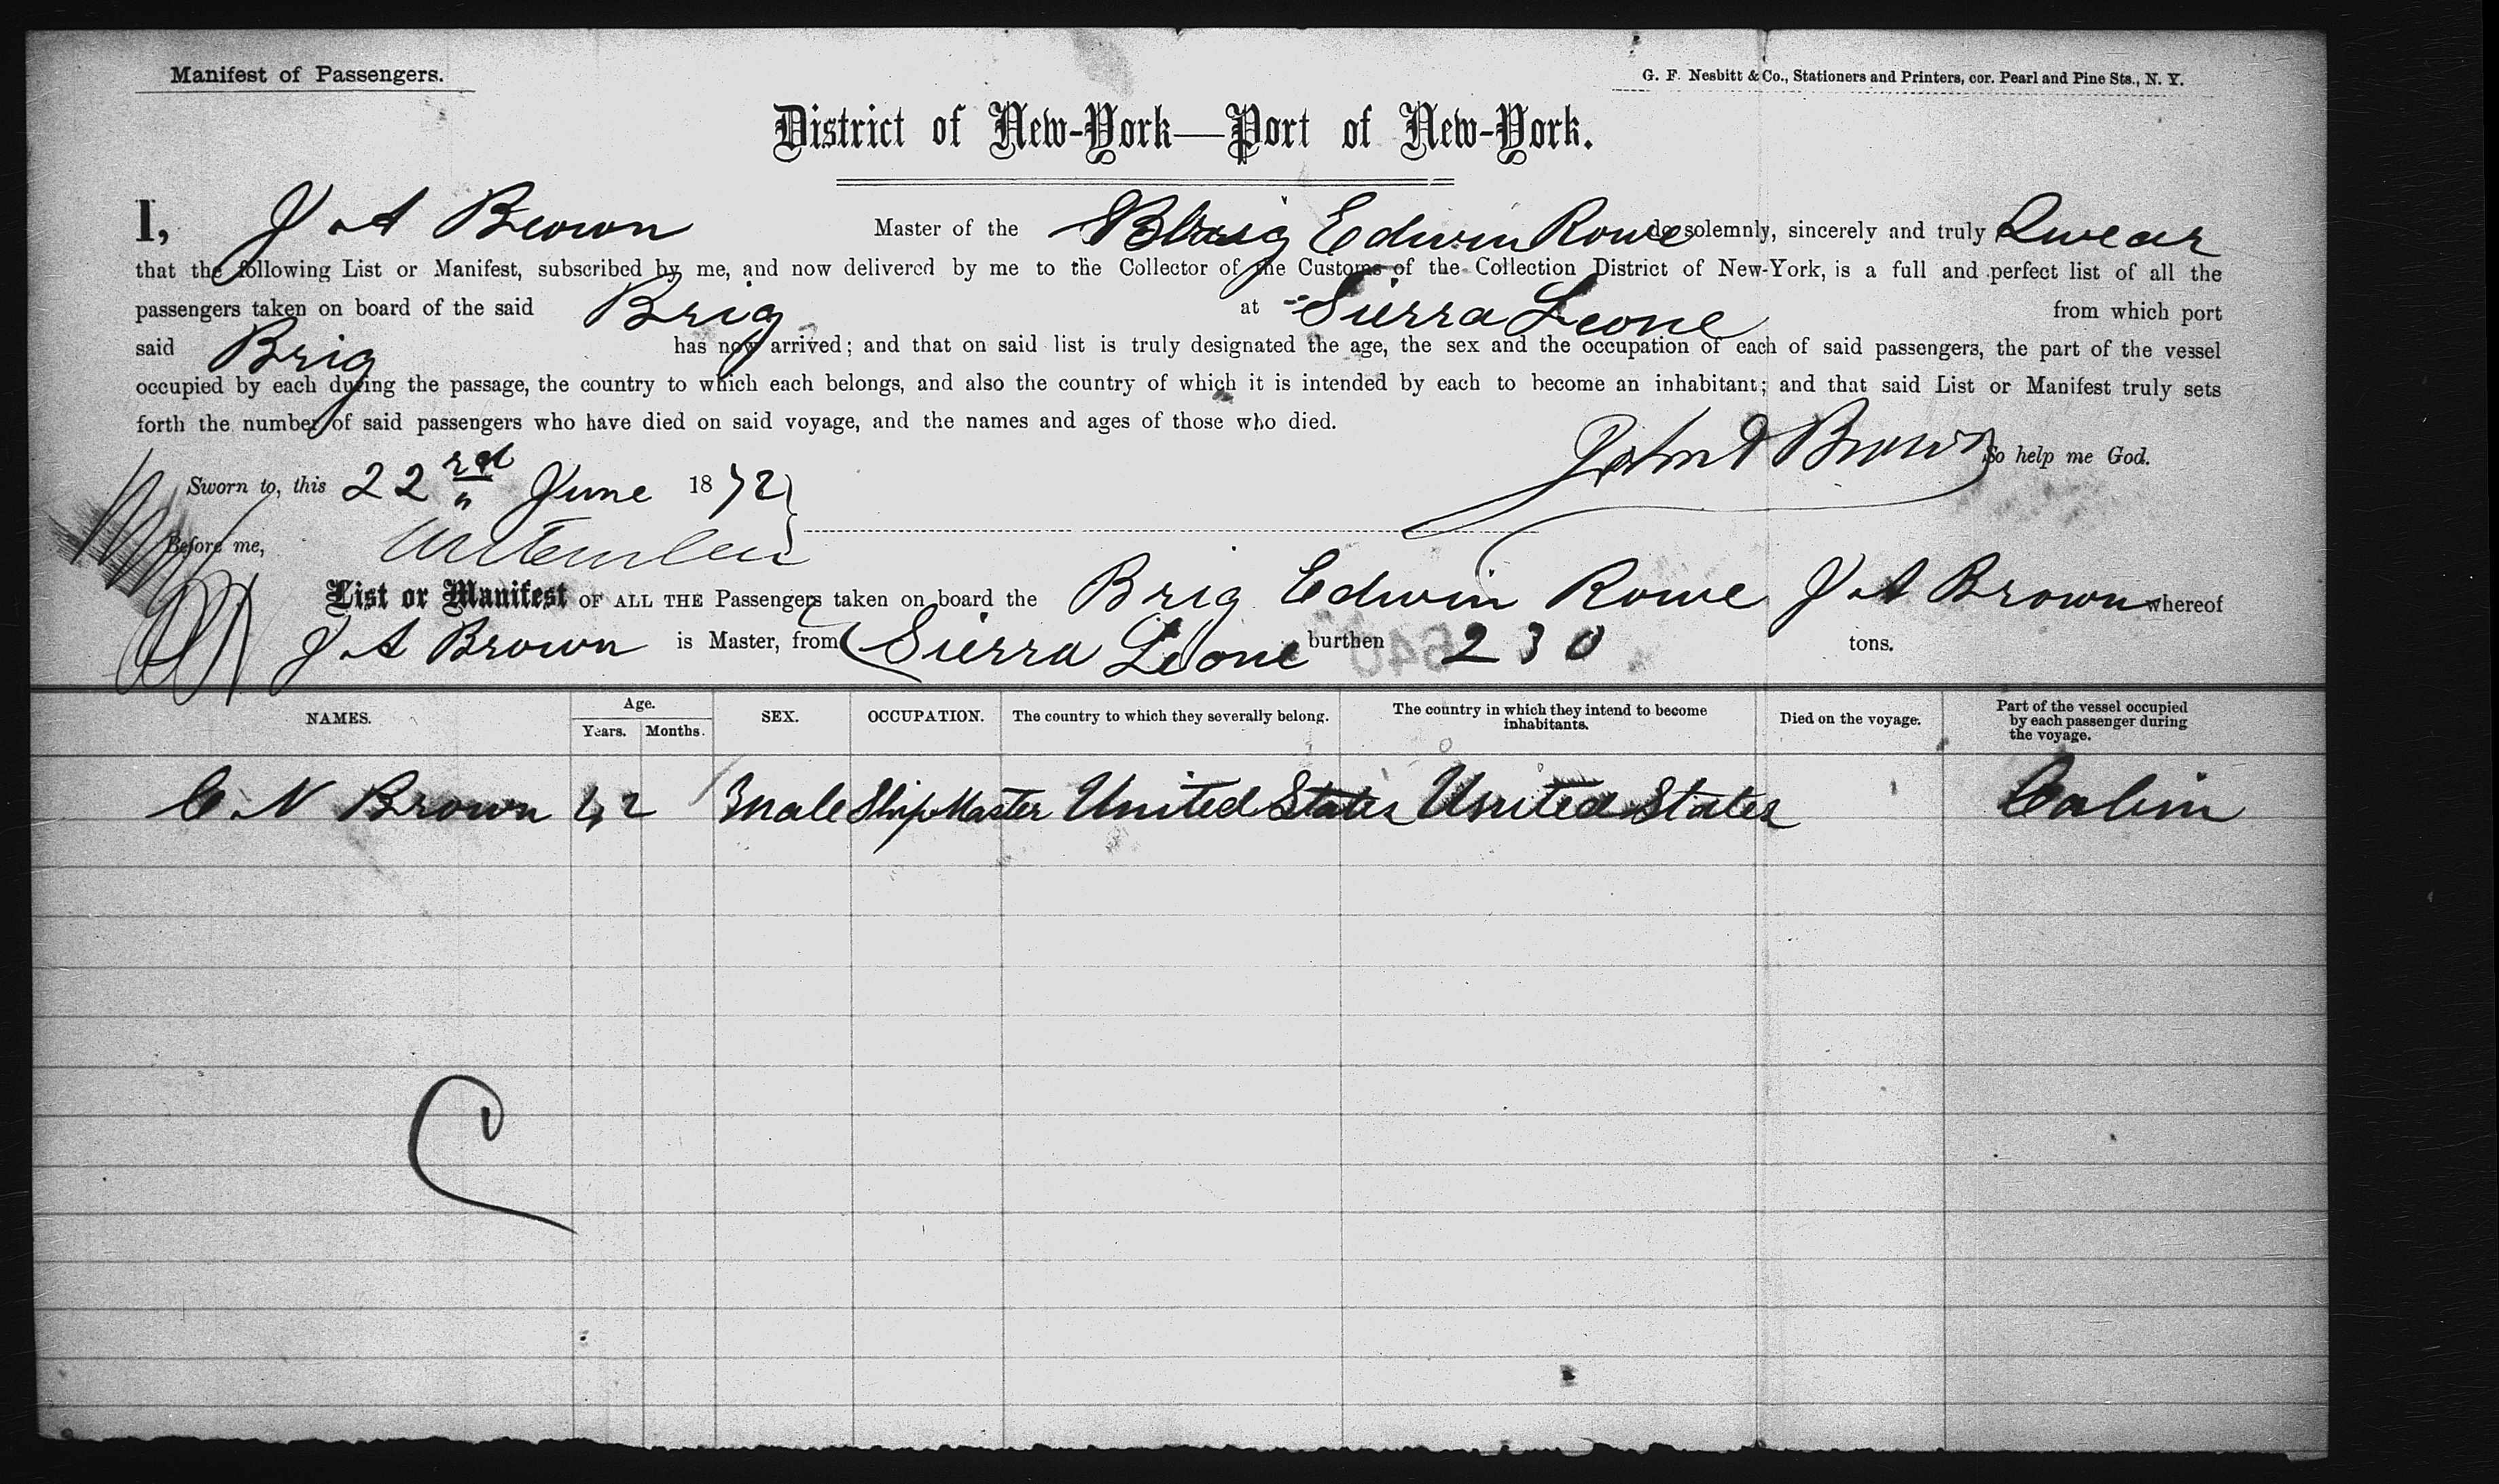 Manifest of Passengers.
G. F. Nesbitt & Co., Stationers and Printers, cor. Pearl and Pine Sts., N. Y.
District of New-York—Port of New-York.
I, J A Brown Master of the Brig Edwin Rowe do solemnly, sincerely and truly Swear
that the following List or Manifest, subscribed by me, and now delivered by me to the Collector of the Customs of the Collection District of New-York, is a full and perfect list of all the
passengers taken on board of the said Brig at Sierra Leone from which port
said Brig has now arrived; and that on said list is truly designated the age, the sex and the occupation of each of said passengers, the part of the vessel
occupied by each during the passage, the country to which each belongs, and also the country of which it is intended by each to become an inhabitant; and that said List or Manifest truly sets
forth the number of said passengers who have died on said voyage, and the names and ages of those who died.
John A Brown So help me God.
Sworn to, this 22nd June 1872
Before me,
List or Manifest OF ALL THE Passengers taken on board the Brig Edwin Rowe J A Brown whereof
J A Brown is Master, from Sierra Leone burthen 230 tons.
NAMES. Age. Years. Months. SEX. OCCUPATION. The country to which they severally belong. The country in which they intend to become inhabitants. Died on the voyage. Part of the vessel occupied by each passenger during the voyage.
C. N Brown 42 Male Ship Master United States United States Cabin